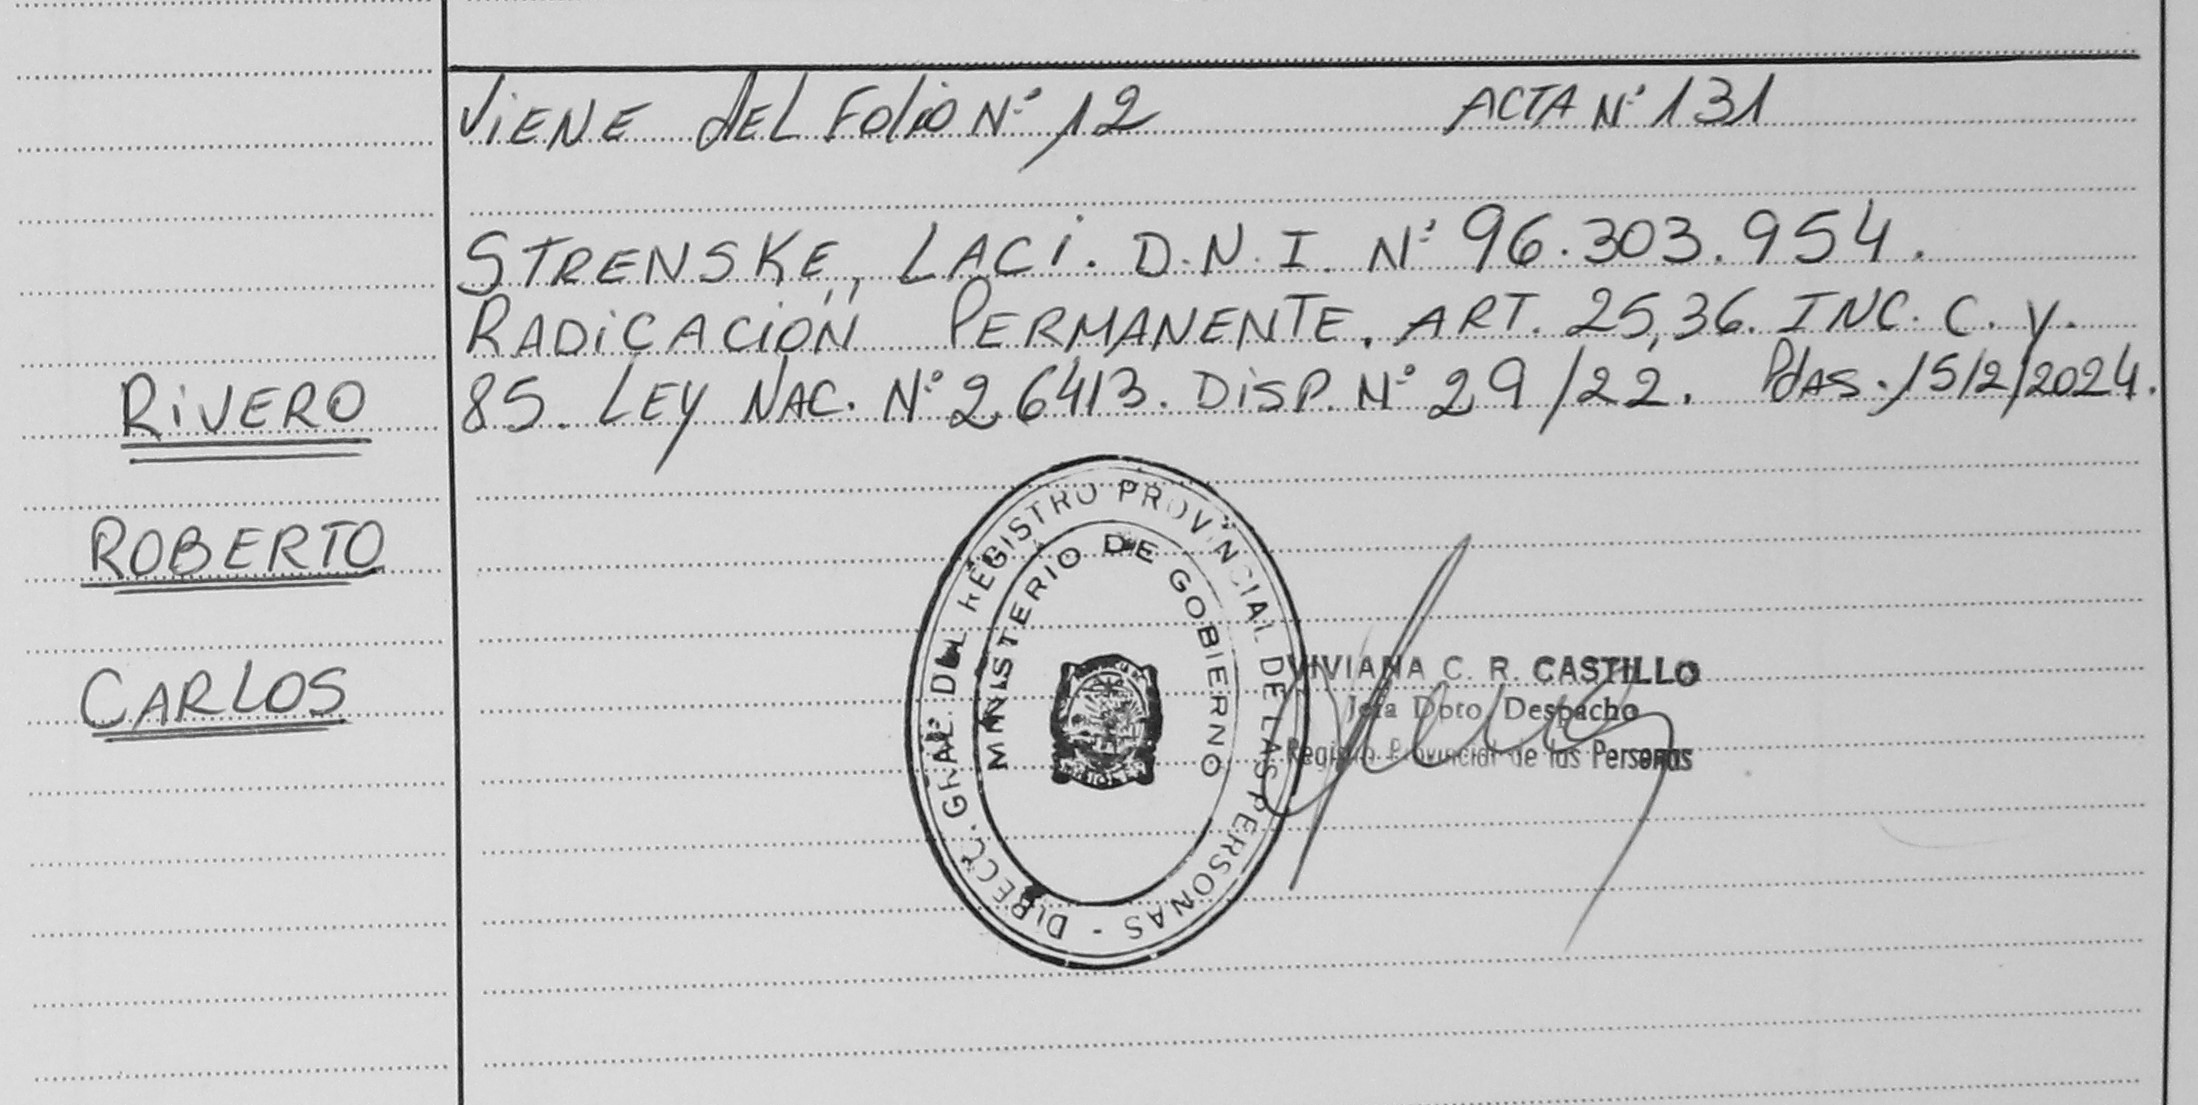 ViENE dEL FOliO Nº 12 ACTA Nº 131
STRENSKE, LACi. D.N.I. Nº 96.303.954.
RADiCACIÓN PERMANENTE. ART. 25,36. INC. C. y.
85. LEY NAC. Nº 26413. DiSP. Nº 29/22. PdAS. 15/2/2024.
RiVERO
ROBERTO
CARLOS
DIRECC. GRAL. DEL REGISTRO PROVINCIAL DE LAS PERSONAS -
MINISTERIO DE GOBIERNO
MISIONES
VIVIANA C. R. CASTILLO
Jefa Dpto. Despacho
Registro Provincial de las Personas